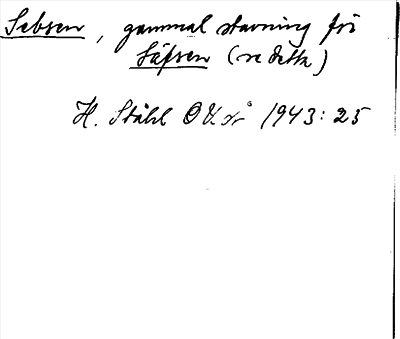 Sebsen, gammal stavning för
Säfsen (se detta)
H. Ståhl OUÅ 1943: 25